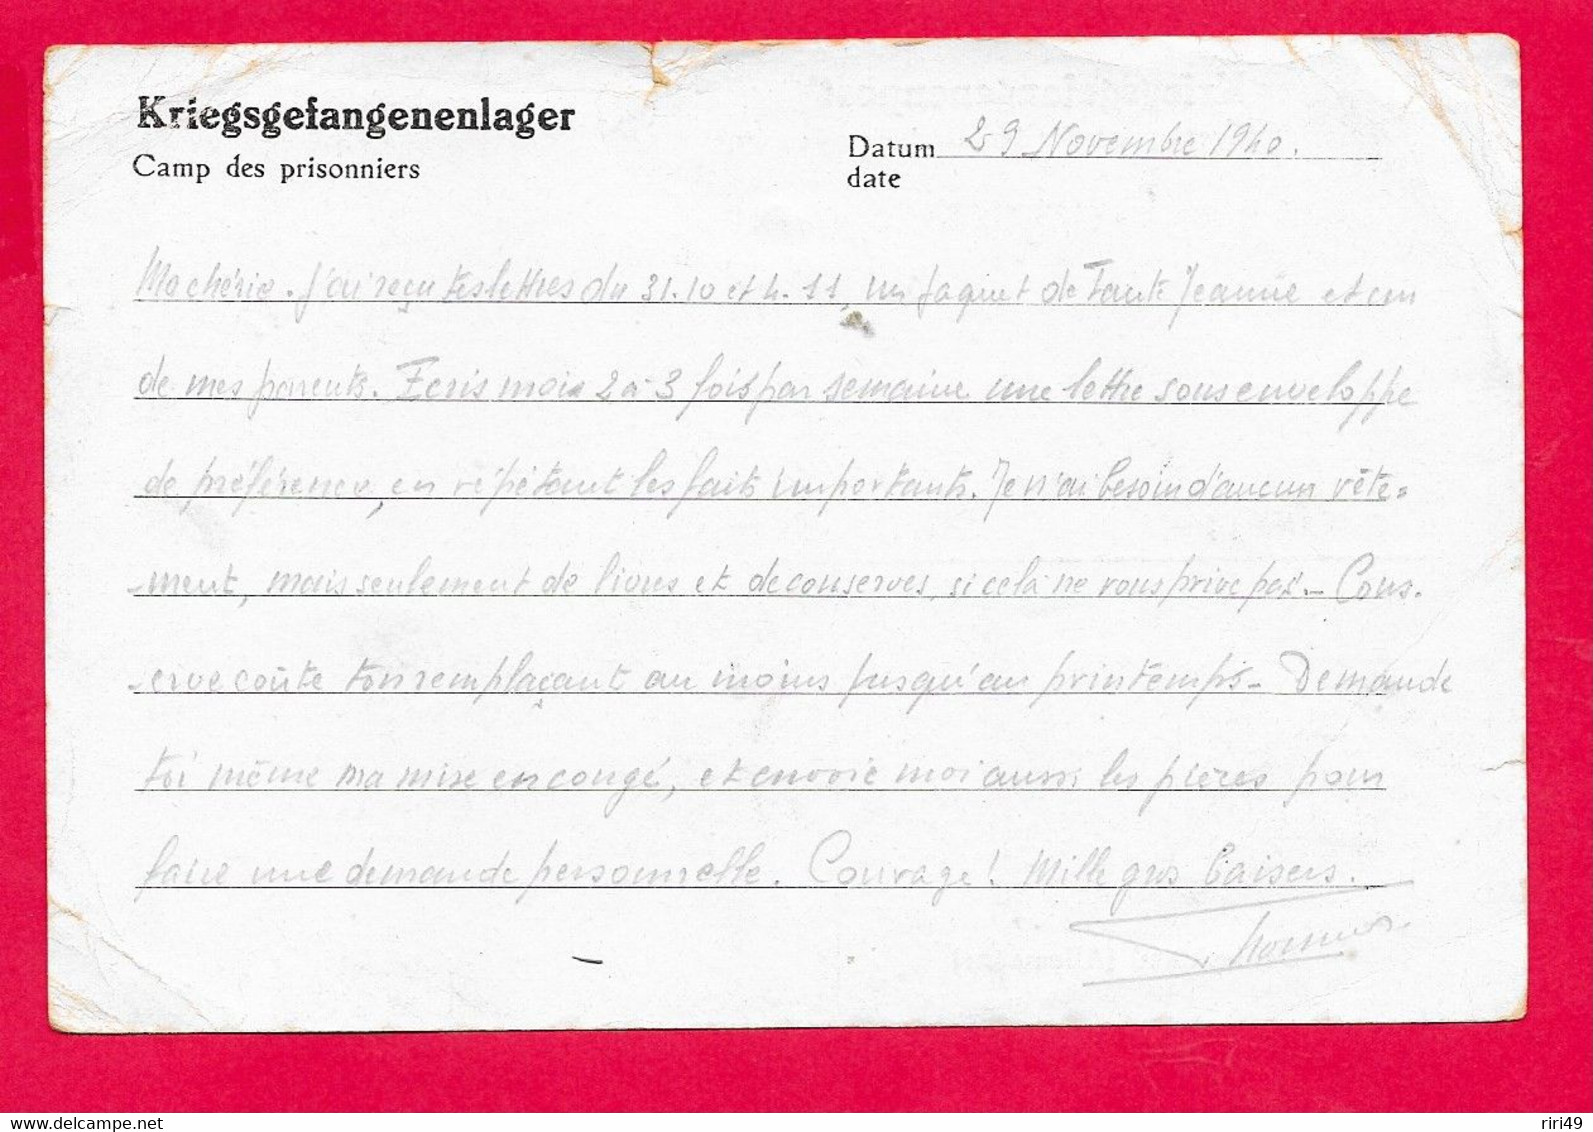 Kriegsgefangenenlager
Camp des prisonniers
Datum 29 Novembre 1940.
date
Ma chérie. J'ai reçu tes lettres du 31.10 et 4.11, un paquet de Tante Jeanne et un
de mes parents. Ecris moi 2 à 3 fois par semaine une lettre sous enveloppe
de préférence, en répétant les faits importants. Je n'ai besoin d'aucun vête=
-ment, mais seulement de livres et de conserves, si celà ne vous prive pas. - Cons.
-erve coûte ton remplaçant au moins jusqu'au printemps - Demande
toi même ma mise en congé, et envoie moi aussi les pièces pour
faire une demande personnelle. Courage! Mille gros baisers.
delcampe.net
riri49